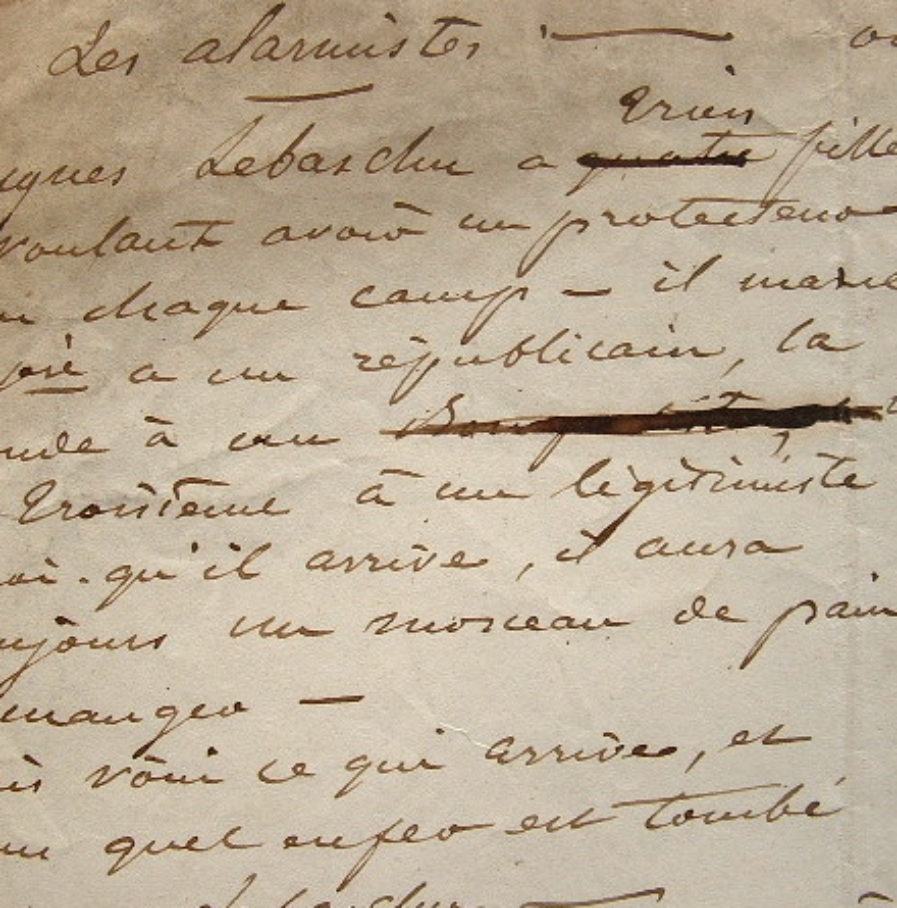 Les alarmistes —
trois
Lebaschu a quatre fille
voulant avoir un protecteur
chaque camp — il marie
a un républicain, la
à un
troisième à un légitimiste
qu'il arrive, il aura
un morceau de pain
manger —
voici ce qui arrive, et
quel enfer est tombé